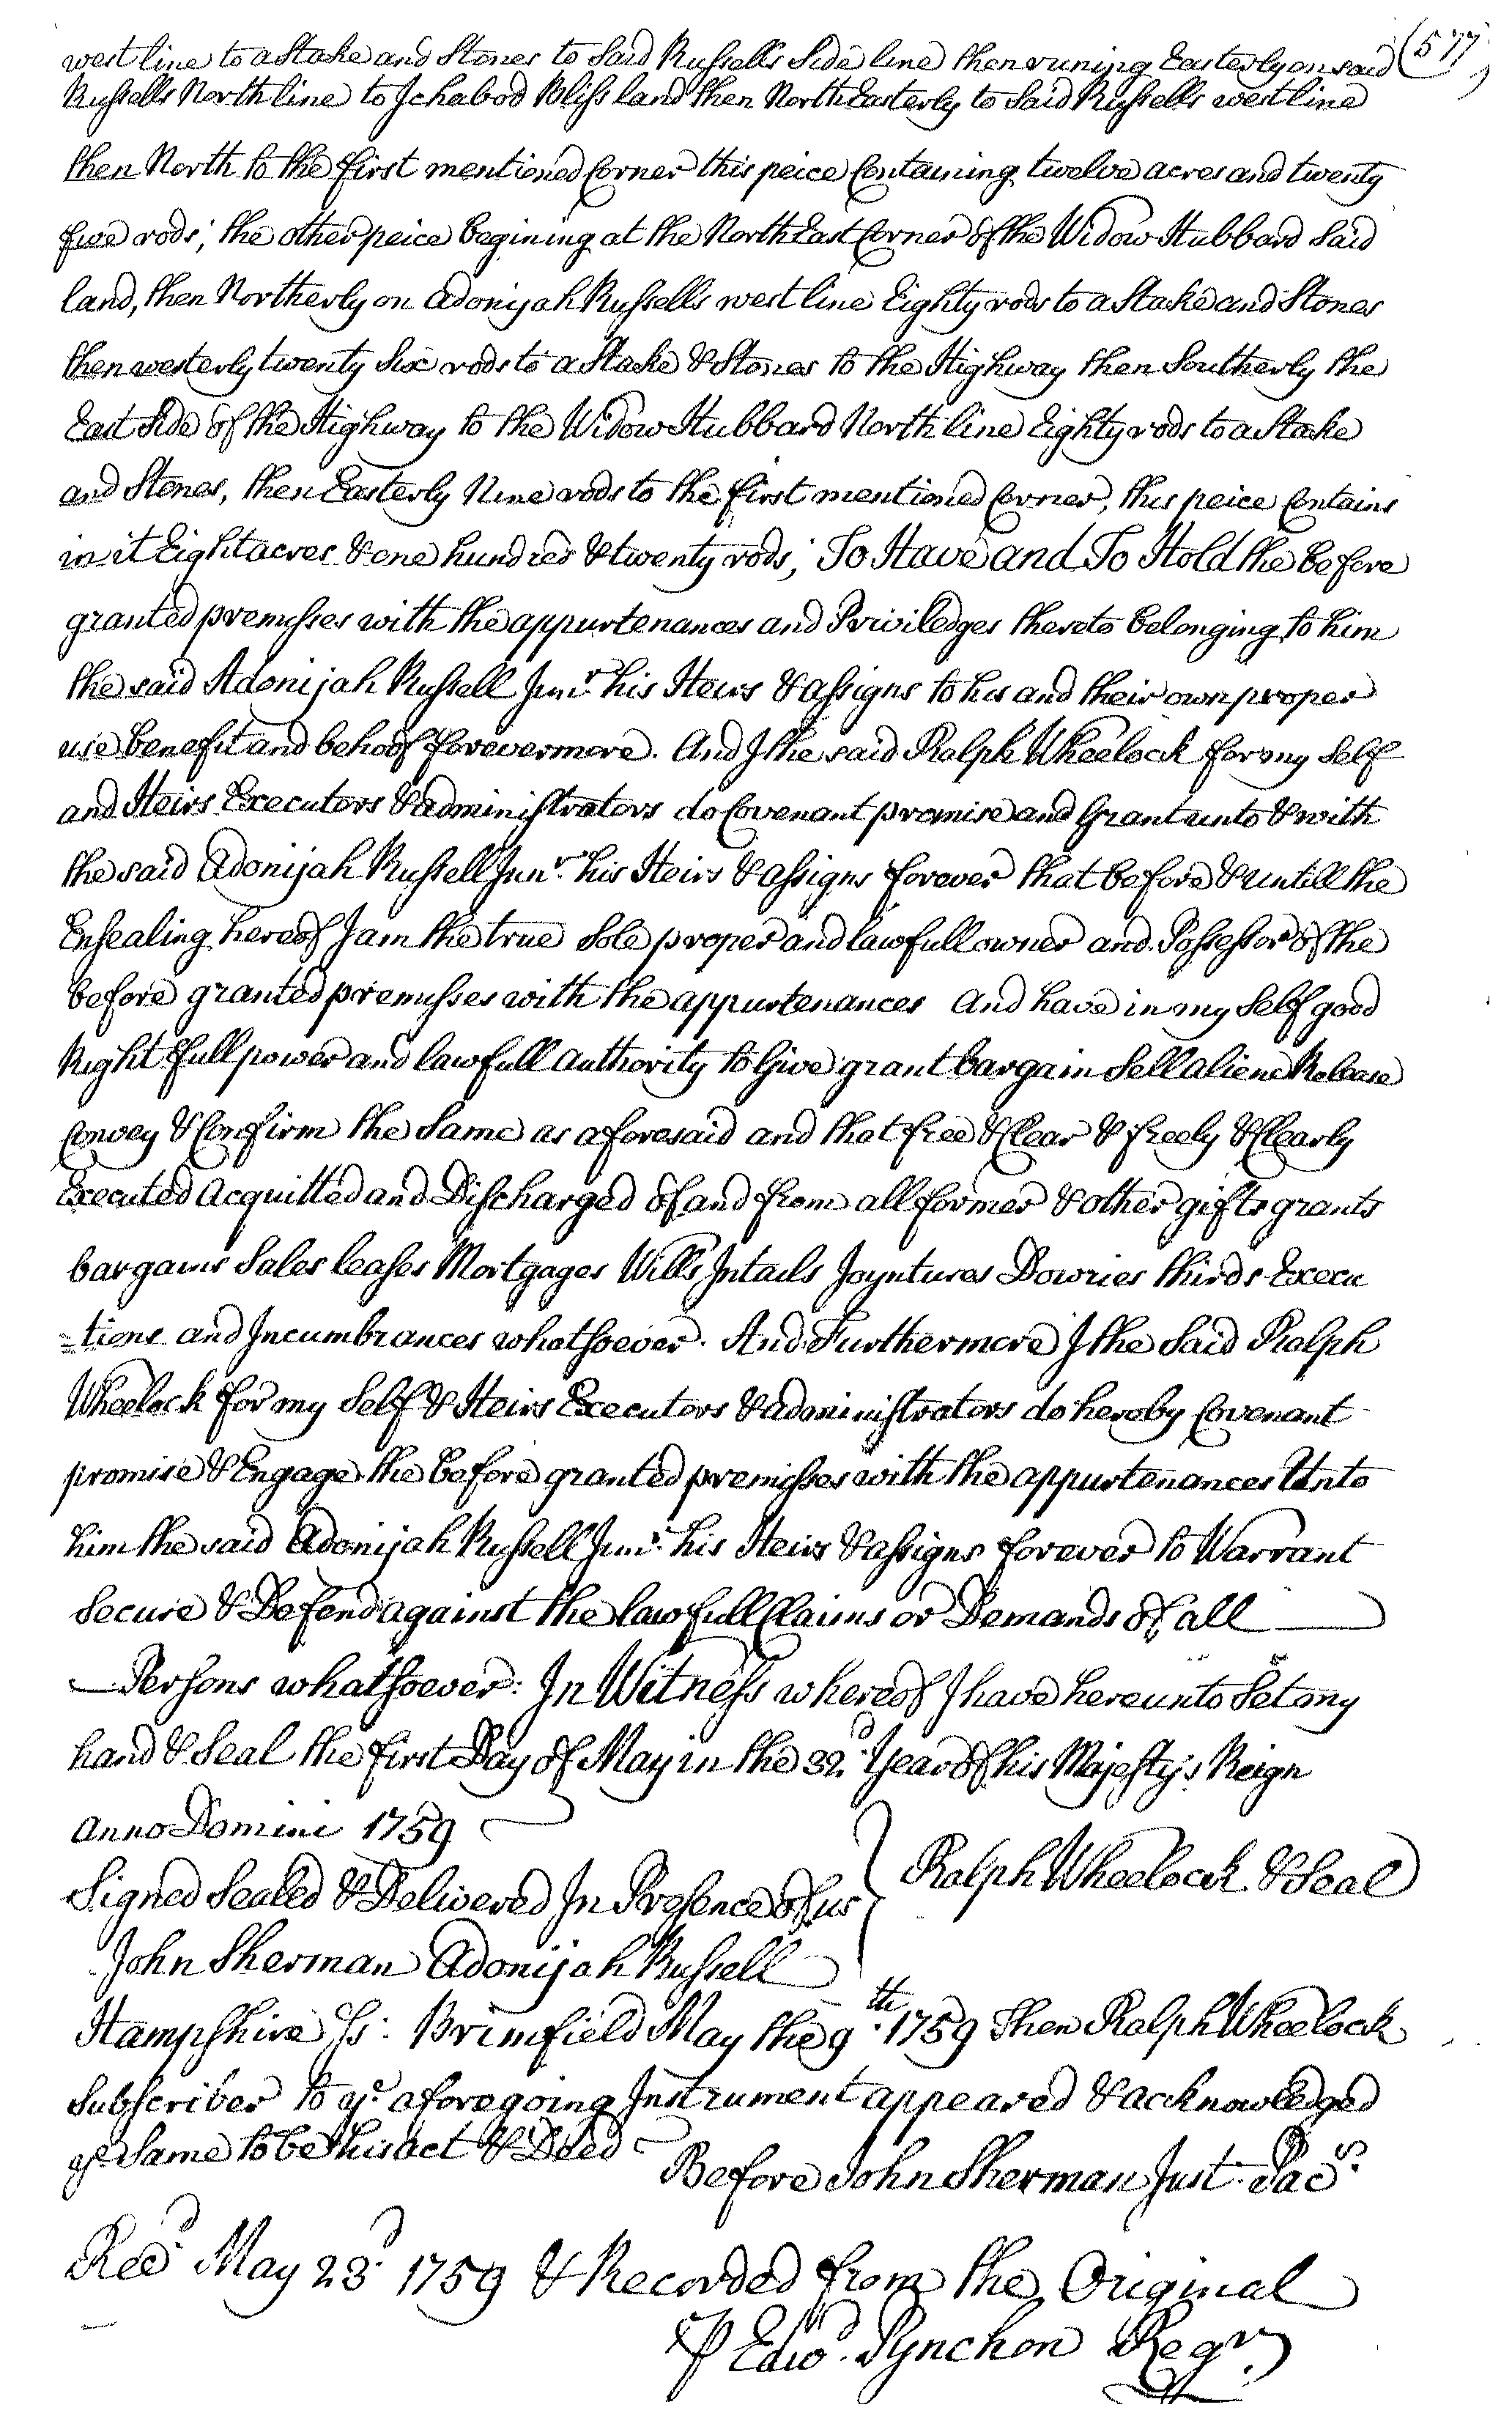 (577)
west line to a Stake and Stones to Said Russells Side line then runing Easterly on said
Russells North line to Ichabod Bliss land then North Easterly to Said Russells west line
then North to the first mentioned Corner this peice Containing twelve acres and twenty
five rods; the other peice begining at the North East Corner of the Widow Hubbard Said
land, then Northerly on Adonijah Russells west line Eighty rods to a Stake and Stones
then westerly twenty Six rods to a Stake & Stones to the Highway then Southerly the
East Side of the Highway to the Widow Hubbard North line Eighty rods to a Stake
and Stones, then Easterly Nine rods to the first mentioned Corner, this peice Contains
in it Eight acres & one hundred & twenty rods; To Have and To Hold the before
granted premisses with the appurtenances and Priviledges thereto belonging to him
the said Adonijah Russell Junr. his Heirs & assigns to his and their own proper
use benefit and behoof forevermore. And I the said Ralph Wheelock for my Self
and Heirs Executors & administrators do Covenant promise and Grant unto & with
the said Adonijah Russell Junr. his Heirs & assigns forever that before & untill the
Ensealing hereof I am the true Sole proper and lawfull owner and Possessor of the
before granted premisses with the appurtenances And have in my Self good
Right full power and lawfull authority to Give grant bargain Sell aliene Release
Convey & Confirm the Same as aforesaid and that free & Clear & freely & Clearly
Executed Acquitted and Discharged of and from all former & other gifts grants
bargains Sales leases Mortgages Wills Intails Joyntures Dowries thirds Execu
=tions and Incumbrances whatsoever. And Furthermore I the Said Ralph
Wheelock for my Self & Heirs Executors & administrators do hereby Covenant
promise & Engage the before granted premisses with the appurtenances Unto
him the said Adonijah Russell Junr. his Heirs & assigns forever to Warrant
Secure & Defend against the lawfull Claims or Demands of all
Persons whatsoever: In Witness whereof I have hereunto Set my
hand & Seal the first Day of May in the 32d. Year of his Majesty's Reign
Anno Domini 1759
Signed Sealed & Delivered In Presence of us } Ralph Wheelock & Seal
John Sherman Adonijah Russell
Hampshire Ss: Brimfield May the 9th. 1759 Then Ralph Wheelock
Subscriber to ye. aforegoing Instrument appeared & acknowledged
ye. Same to be his act & Deed
Before John Sherman Just. Pacs.
Recd. May 23d. 1759 & Recorded from the Original
⅌ Edwd. Pynchon Regr.